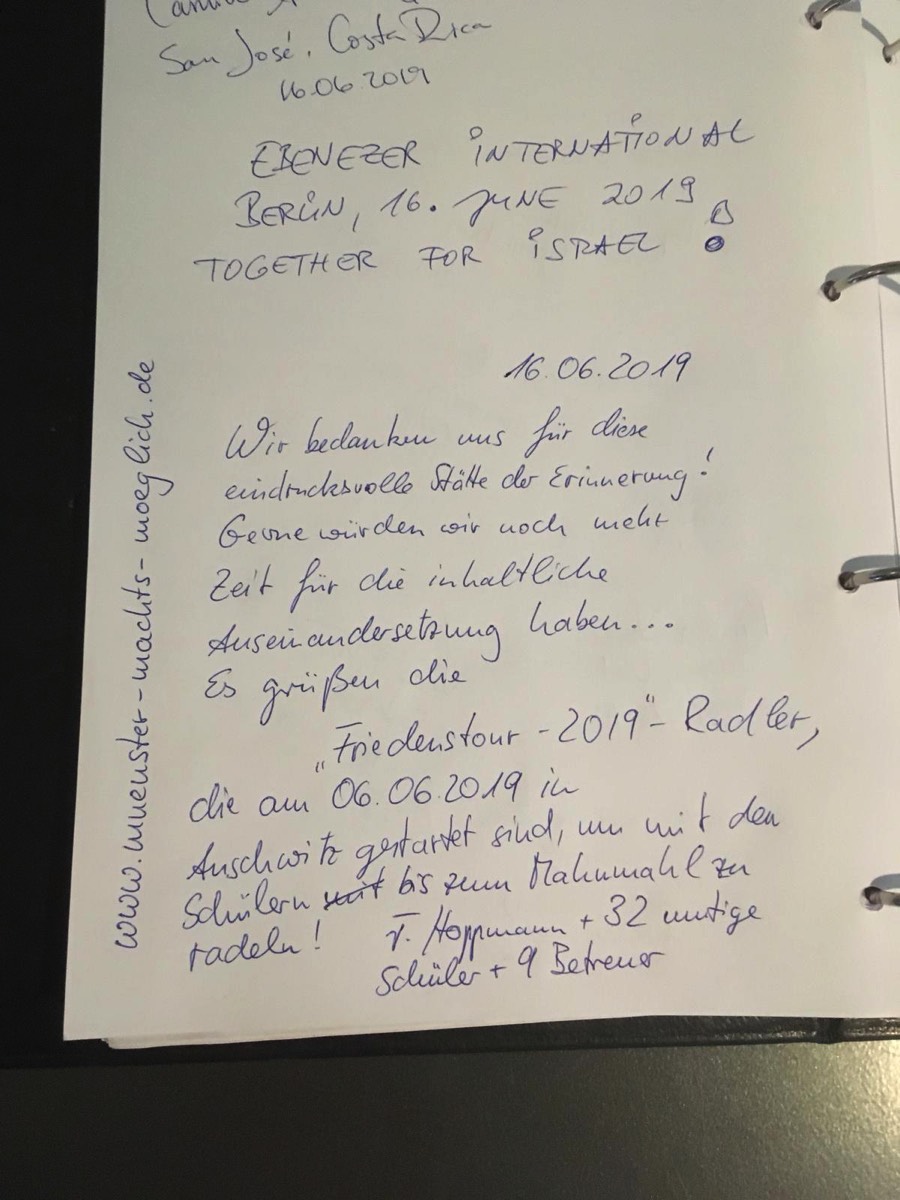 San José, Costa Rica
16.06.2019
EBENEZER INTERNATIONAL
BERLIN, 16. JUNE 2019
TOGETHER FOR ISRAEL !
16.06.2019
Wir bedanken uns für diese
eindrucksvolle Stätte der Erinnerung!
Gerne würden wir noch mehr
Zeit für die inhaltliche
Auseinandersetzung haben...
Es grüßen die
„Friedenstour-2019"-Radler,
die am 06.06.2019 in
Auschwitz gestartet sind, um mit den
Schülern mit bis zum Mahnmahl zu
radeln!
T. Hoppmann + 32 mutige
Schüler + 9 Betreuer
www.muenster-machts-moeglich.de